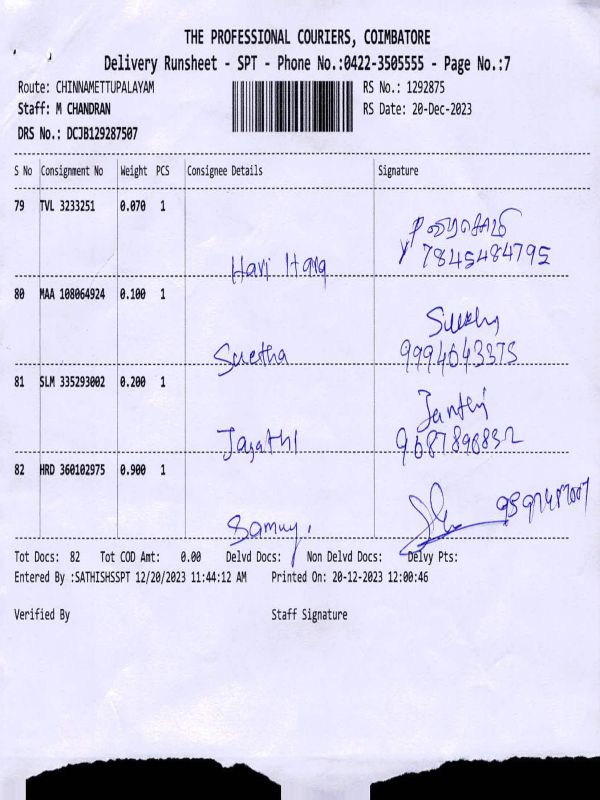 THE PROFESSIONAL COURIERS, COIMBATORE
Delivery Runsheet - SPT - Phone No.:0422-3505555 - Page No.:7
Route: CHINNAMETTUPALAYAM RS No.: 1292875
Staff: M CHANDRAN RS Date: 20-Dec-2023
DRS No.: DCJB129287507
S No Consignment No Weight PCS Consignee Details Signature
79 TVL 3233251 0.070 1
7845484795
Hari
80 MAA 108064924 0.100 1
Suetha 9994643375
81 SLM 335293002 0.200 1
Jagathi 9687896832
82 HRD 360102975 0.900 1
Tot Docs: 82 Tot COD Amt: 0.00 Delvd Docs: Non Delvd Docs: Delvy Pts:
Entered By :SATHISHSSPT 12/20/2023 11:44:12 AM Printed On: 20-12-2023 12:00:46
Verified By Staff Signature